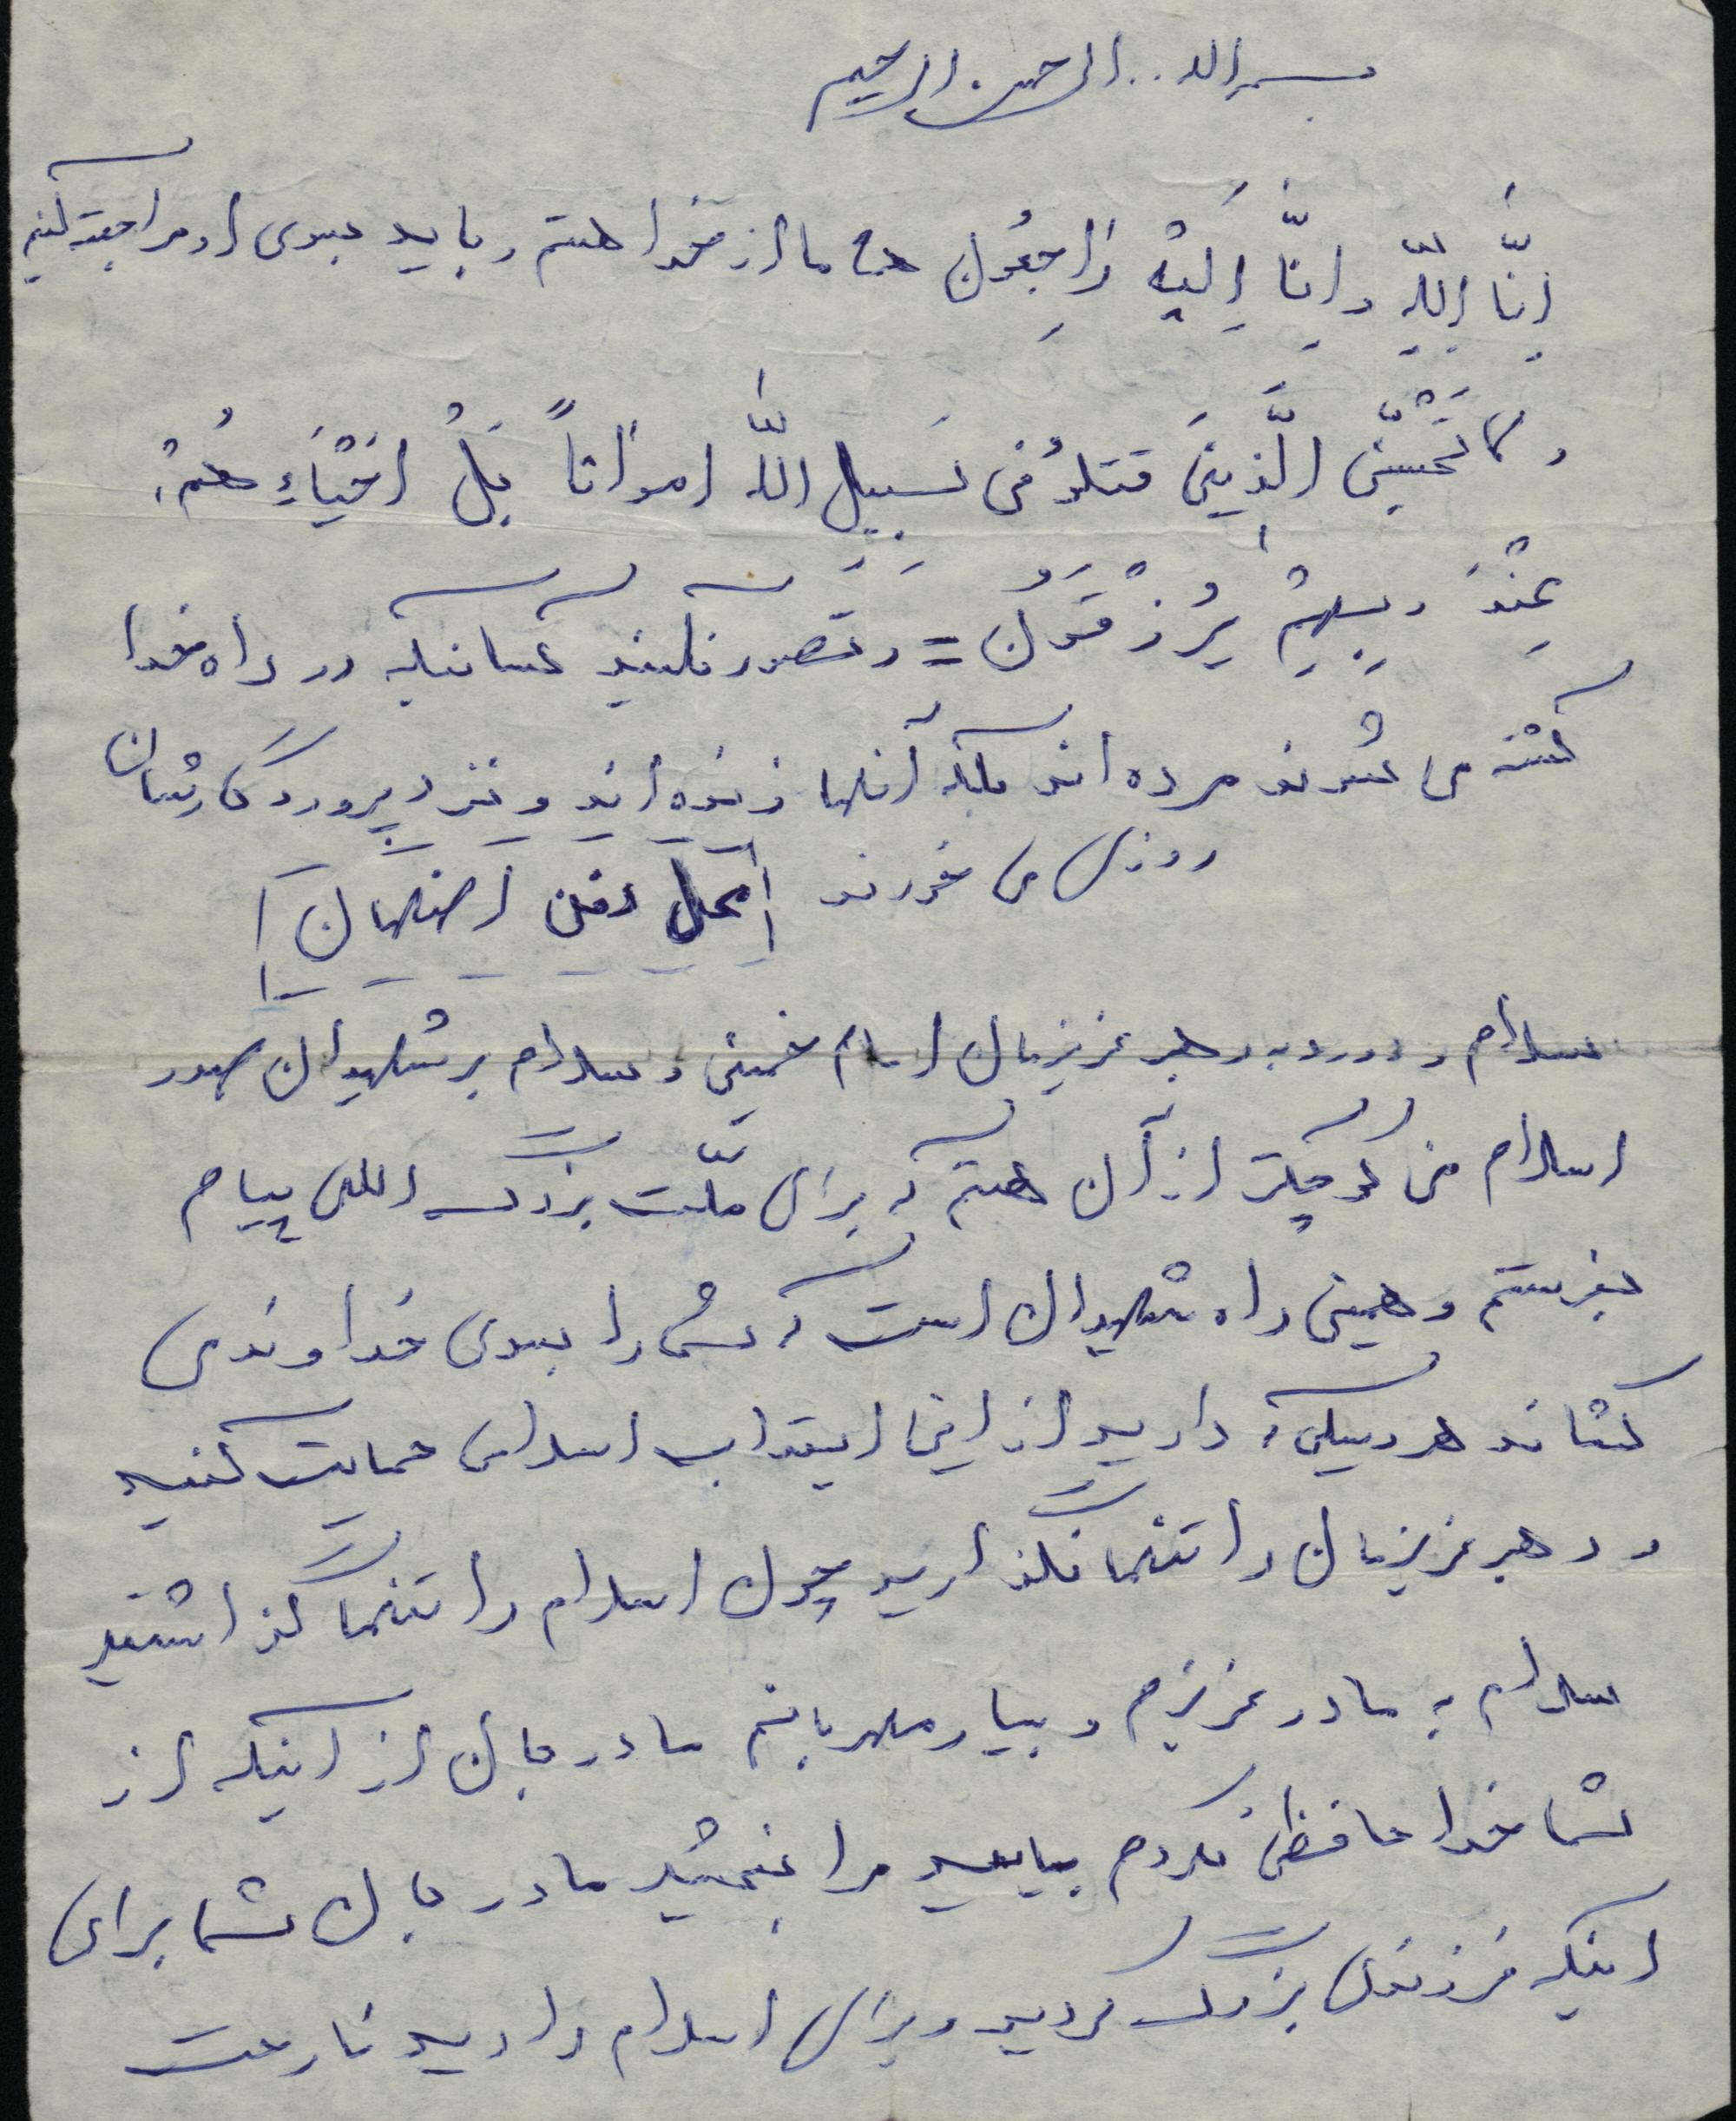 بسم الله الرحمن الرحیم
اِنَّا لِلّٰهِ وَاِنَّا اِلَیْهِ رَاجِعُون همه ما از خدا هستیم و باید بسوی او مراجعت کنیم
و لا تَحْسَبَنَّ الَّذینَ قتلوُ فی سَبیلِ اللّٰه امواتاً بَلْ اَحْیَاءِ هُمْ
عِنْدَ رَبِهِمْ یُرْزَقوُنَ = و تصور نکنید کسانیکه در راه خدا
کشته می شوند مرده اند بلکه آنها زنده اند و نزد پروردگارشان
روزی می خورند محل دفن اصفهان
سلام و درود به رهبر عزیزمان امام خمینی و سلام بر شهیدان صدر
اسلام من کوچکتر از آن هستم که برای ملّت بزرگ اللهی پیام
بفرستم و همین راه شهیدان است که شما را بسوی خداوندی
کشاند هر وسیله داریید از این انقلاب اسلامی حمایت کنیید
و رهبر عزیزمان را تنها نگذارید چون اسلام را تنها گذاشتید
سلام به مادر عزیزم و بسیار مهربانم مادر جان از اینکه از
شما خدا حافظی نکردم بیایید مرا ببخشید مادر جان شما برای
اینکه فرزندی بزرگ کردید و برای اسلام دادید ناراحت